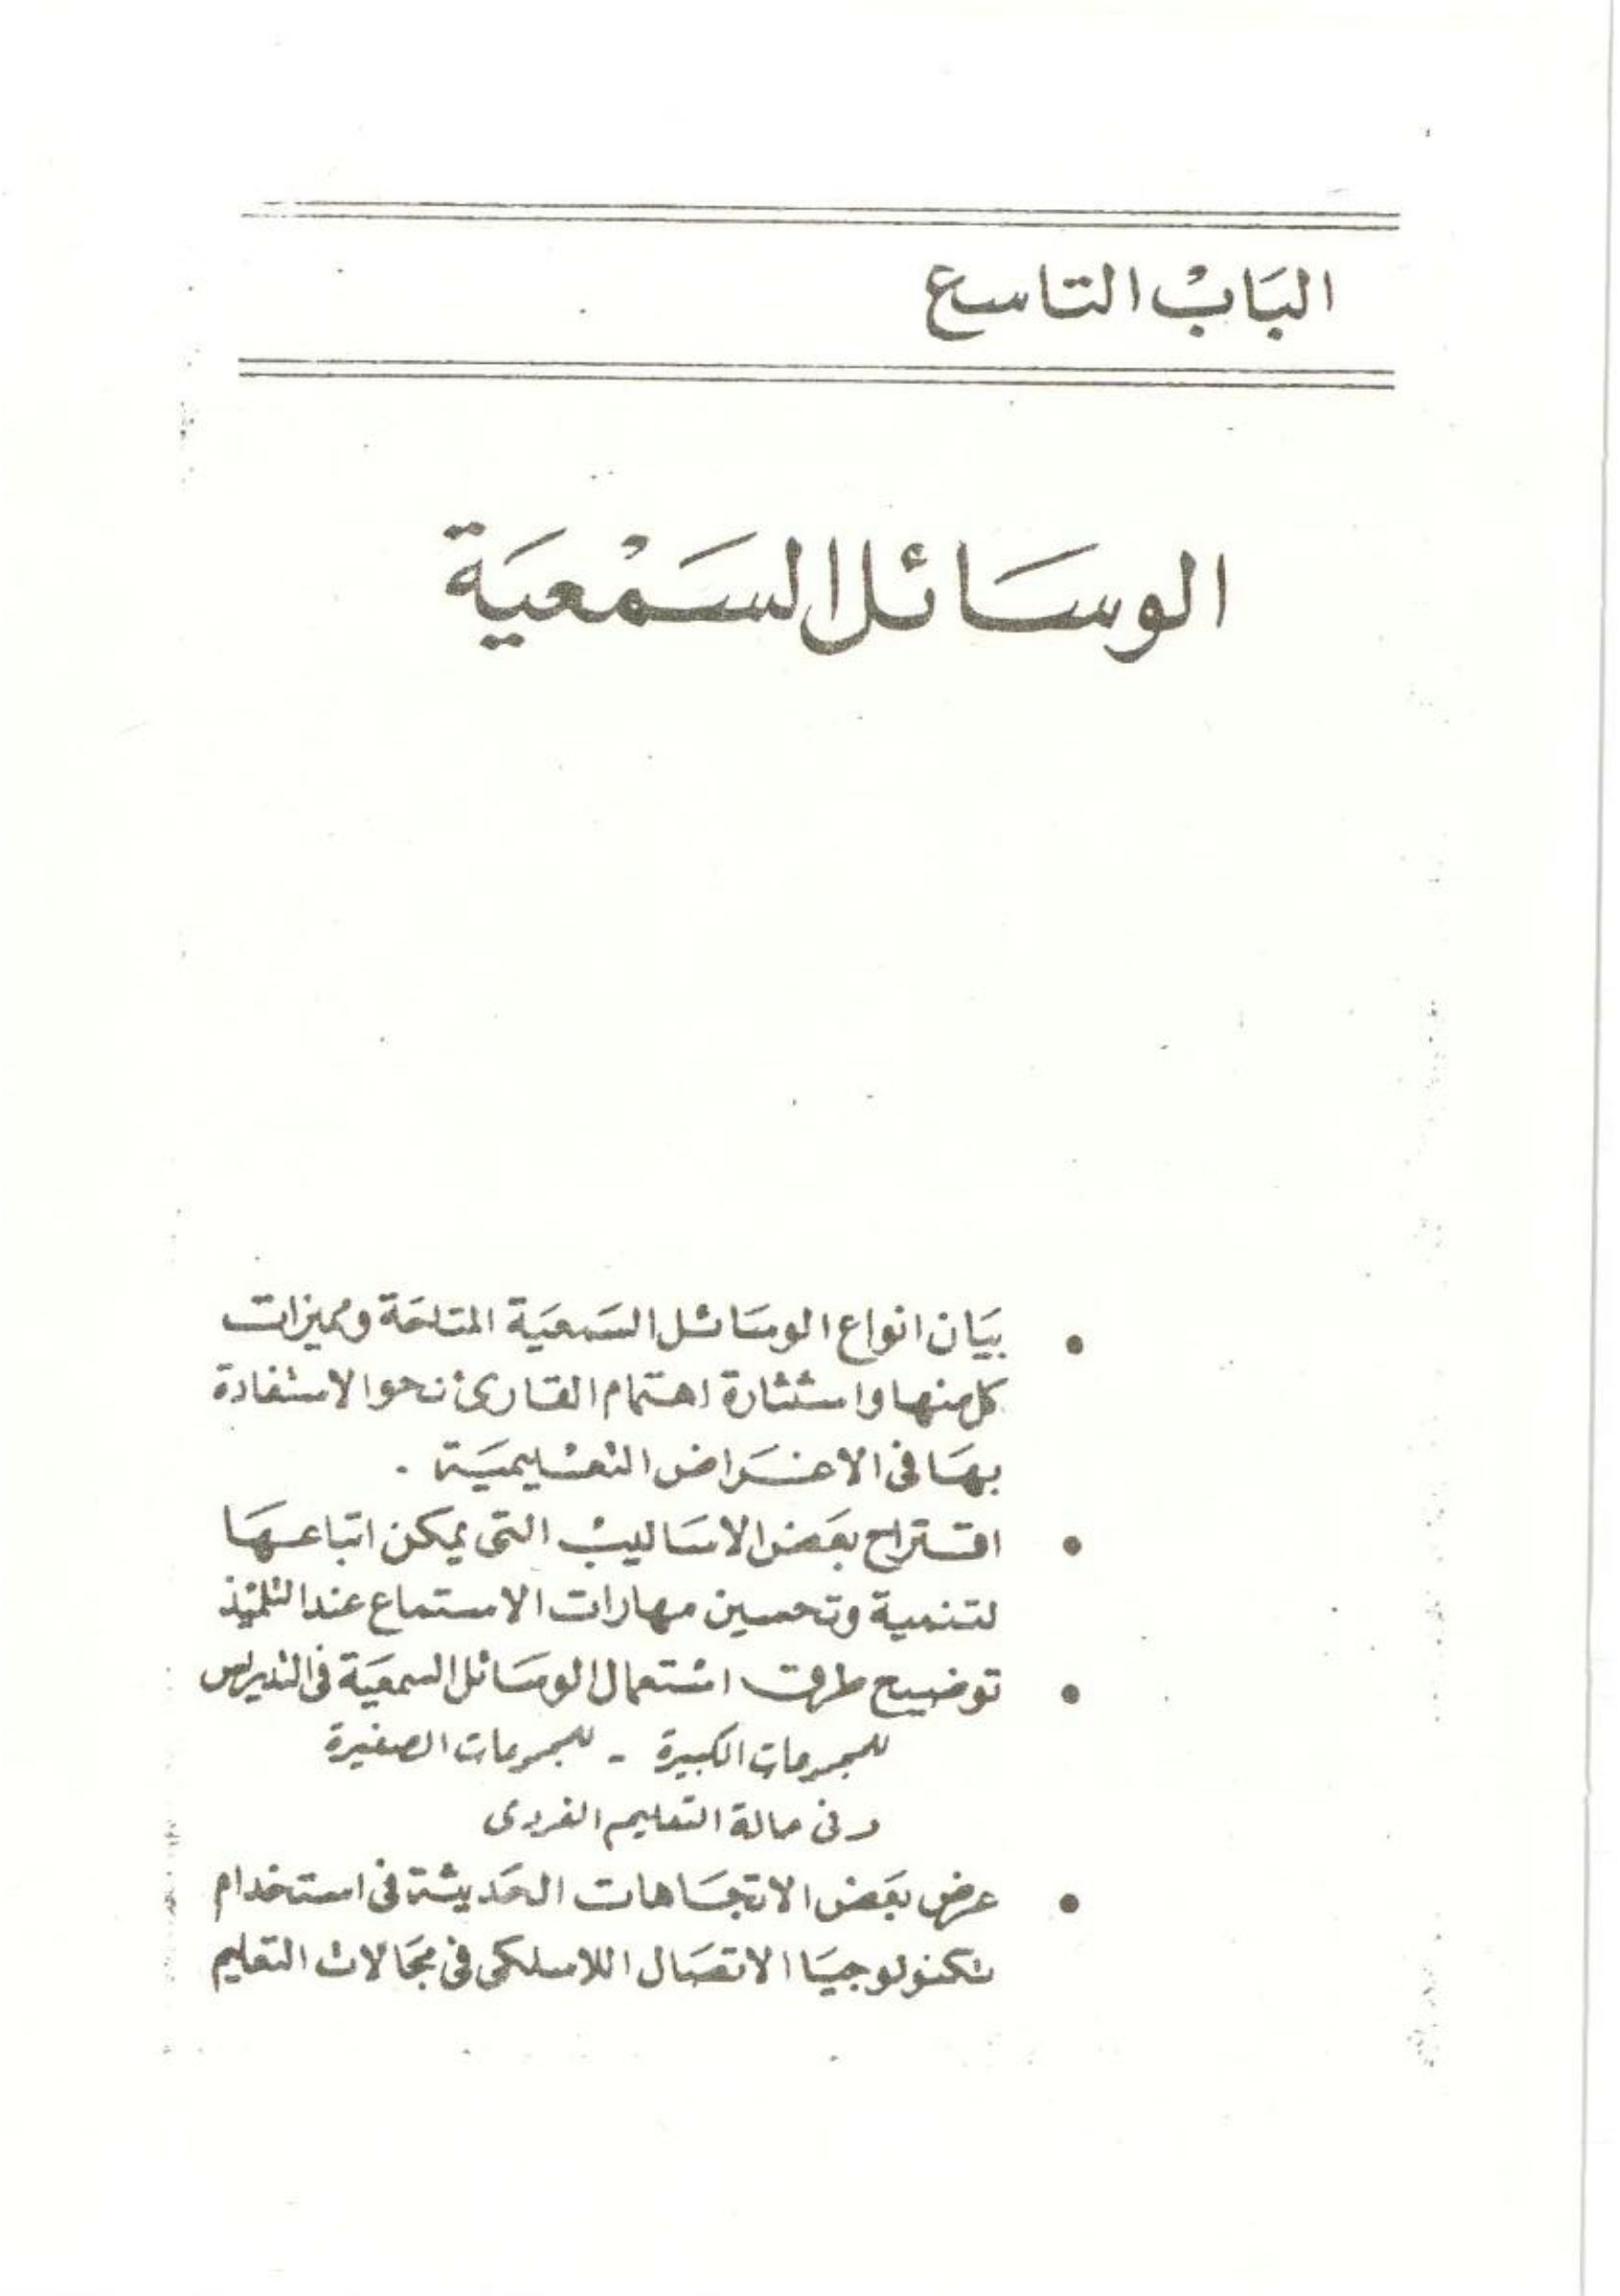 البَابْ التاسع
الوسَائل السَمْعيَة
• بيَان انواع الوسَائل السَمعيَة المتاحَة ومميزات
كل منها واستثارة اهتمام القارئ نحو الاستفادة
بهَا فى الاغـرَاض التعـليميـَة .
• اقـتراح بعَض الاسَاليبْ التى يمكن اتباعـهَا
لتـنمية وتحسين مهارات الاستماع عند التلميذ
• توضيح طرق استعمال الوسَائل السمعيَة فى التدريس
للمجموعات الكبيرة - للمجموعات الصغيرة
وفى حالة التعليم الفردى
• عرض بعَض الاتجـَاهات الحَديثـة فى استخدام
تكنولوجيـَا الاتصَال اللاسلكى فى مجَالات التعليم